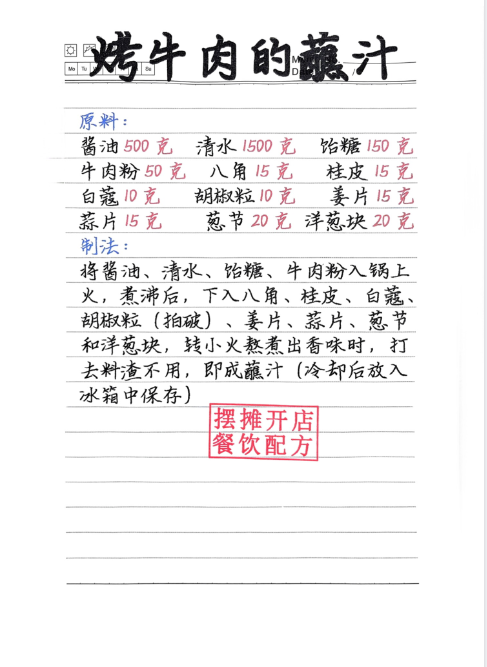 烤牛肉的蘸汁
Mo Tu Sa
原料:
酱油500克 清水1500克 饴糖150克
牛肉粉50克 八角15克 桂皮15克
白蔻10克 胡椒粒10克 姜片15克
蒜片15克 葱节20克 洋葱块20克
制法:
将酱油、清水、饴糖、牛肉粉入锅上
火，煮沸后，下入八角、桂皮、白蔻、
胡椒粒（拍破）、姜片、蒜片、葱节
和洋葱块，转小火熬煮出香味时，打
去料渣不用，即成蘸汁（冷却后放入
冰箱中保存）
摆摊开店
餐饮配方